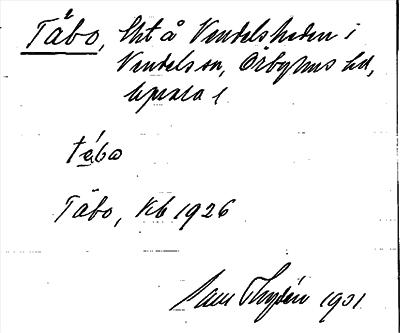 Tåbo, Tht å Vendelsheden i
Vendels sn, Örbyhus hd,
Uppsala l
tá̱bo
Tåbo, Kb 1926
Sam Thyrén 1901